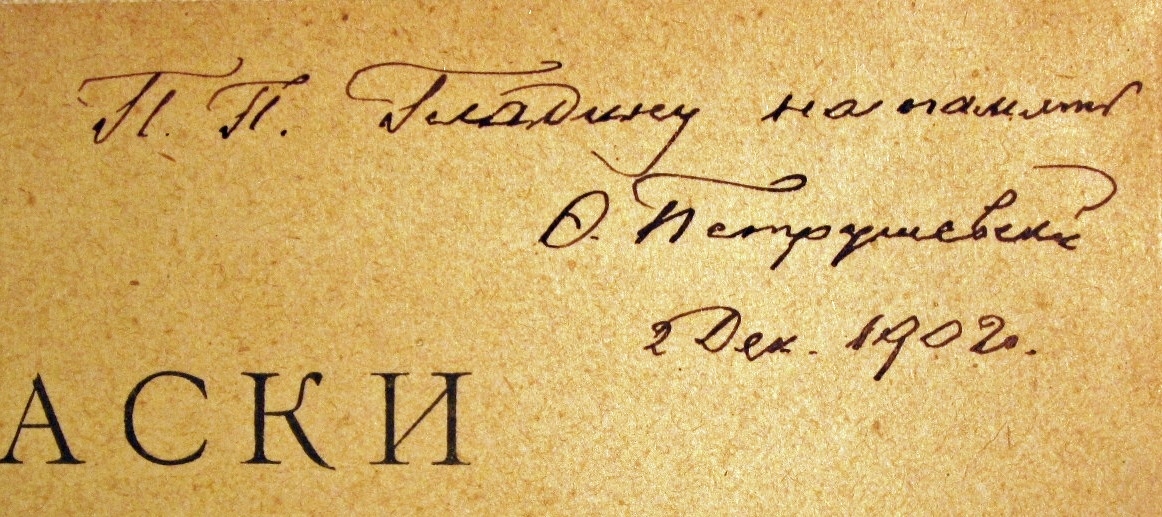 П. П. Гладину на память
Ѳ. Петрушевскі
2 Дек. 1902 г.
АСКИ